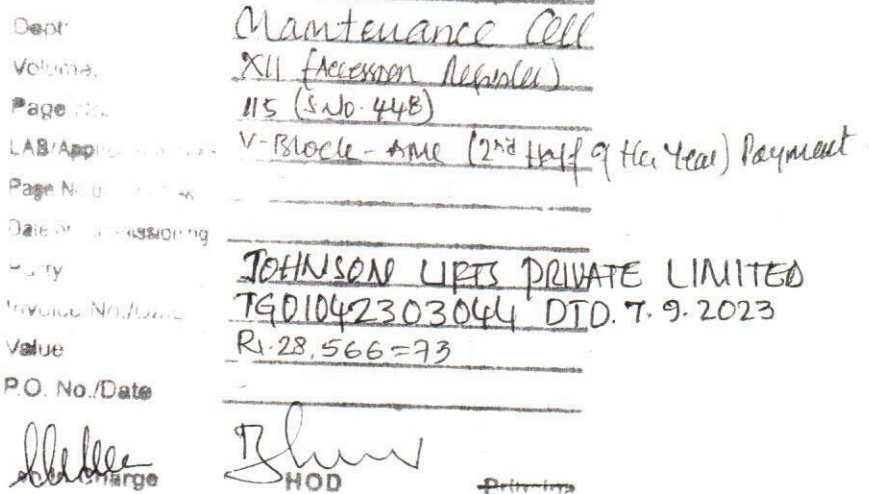 Dept: Maintenance Cell
Volume: XII (Accession Register)
Page No. 115 (S.No. 448)
LAB/Appl V-Block - AMC (2nd Half of the Year) Payment
Page No
Date of Commissioning
Party JOHNSON LIFTS PRIVATE LIMITED
Invoice No./Date TG01042303044 DTD. 7.9.2023
Value Rs.28,566=73
P.O. No./Date
HOD